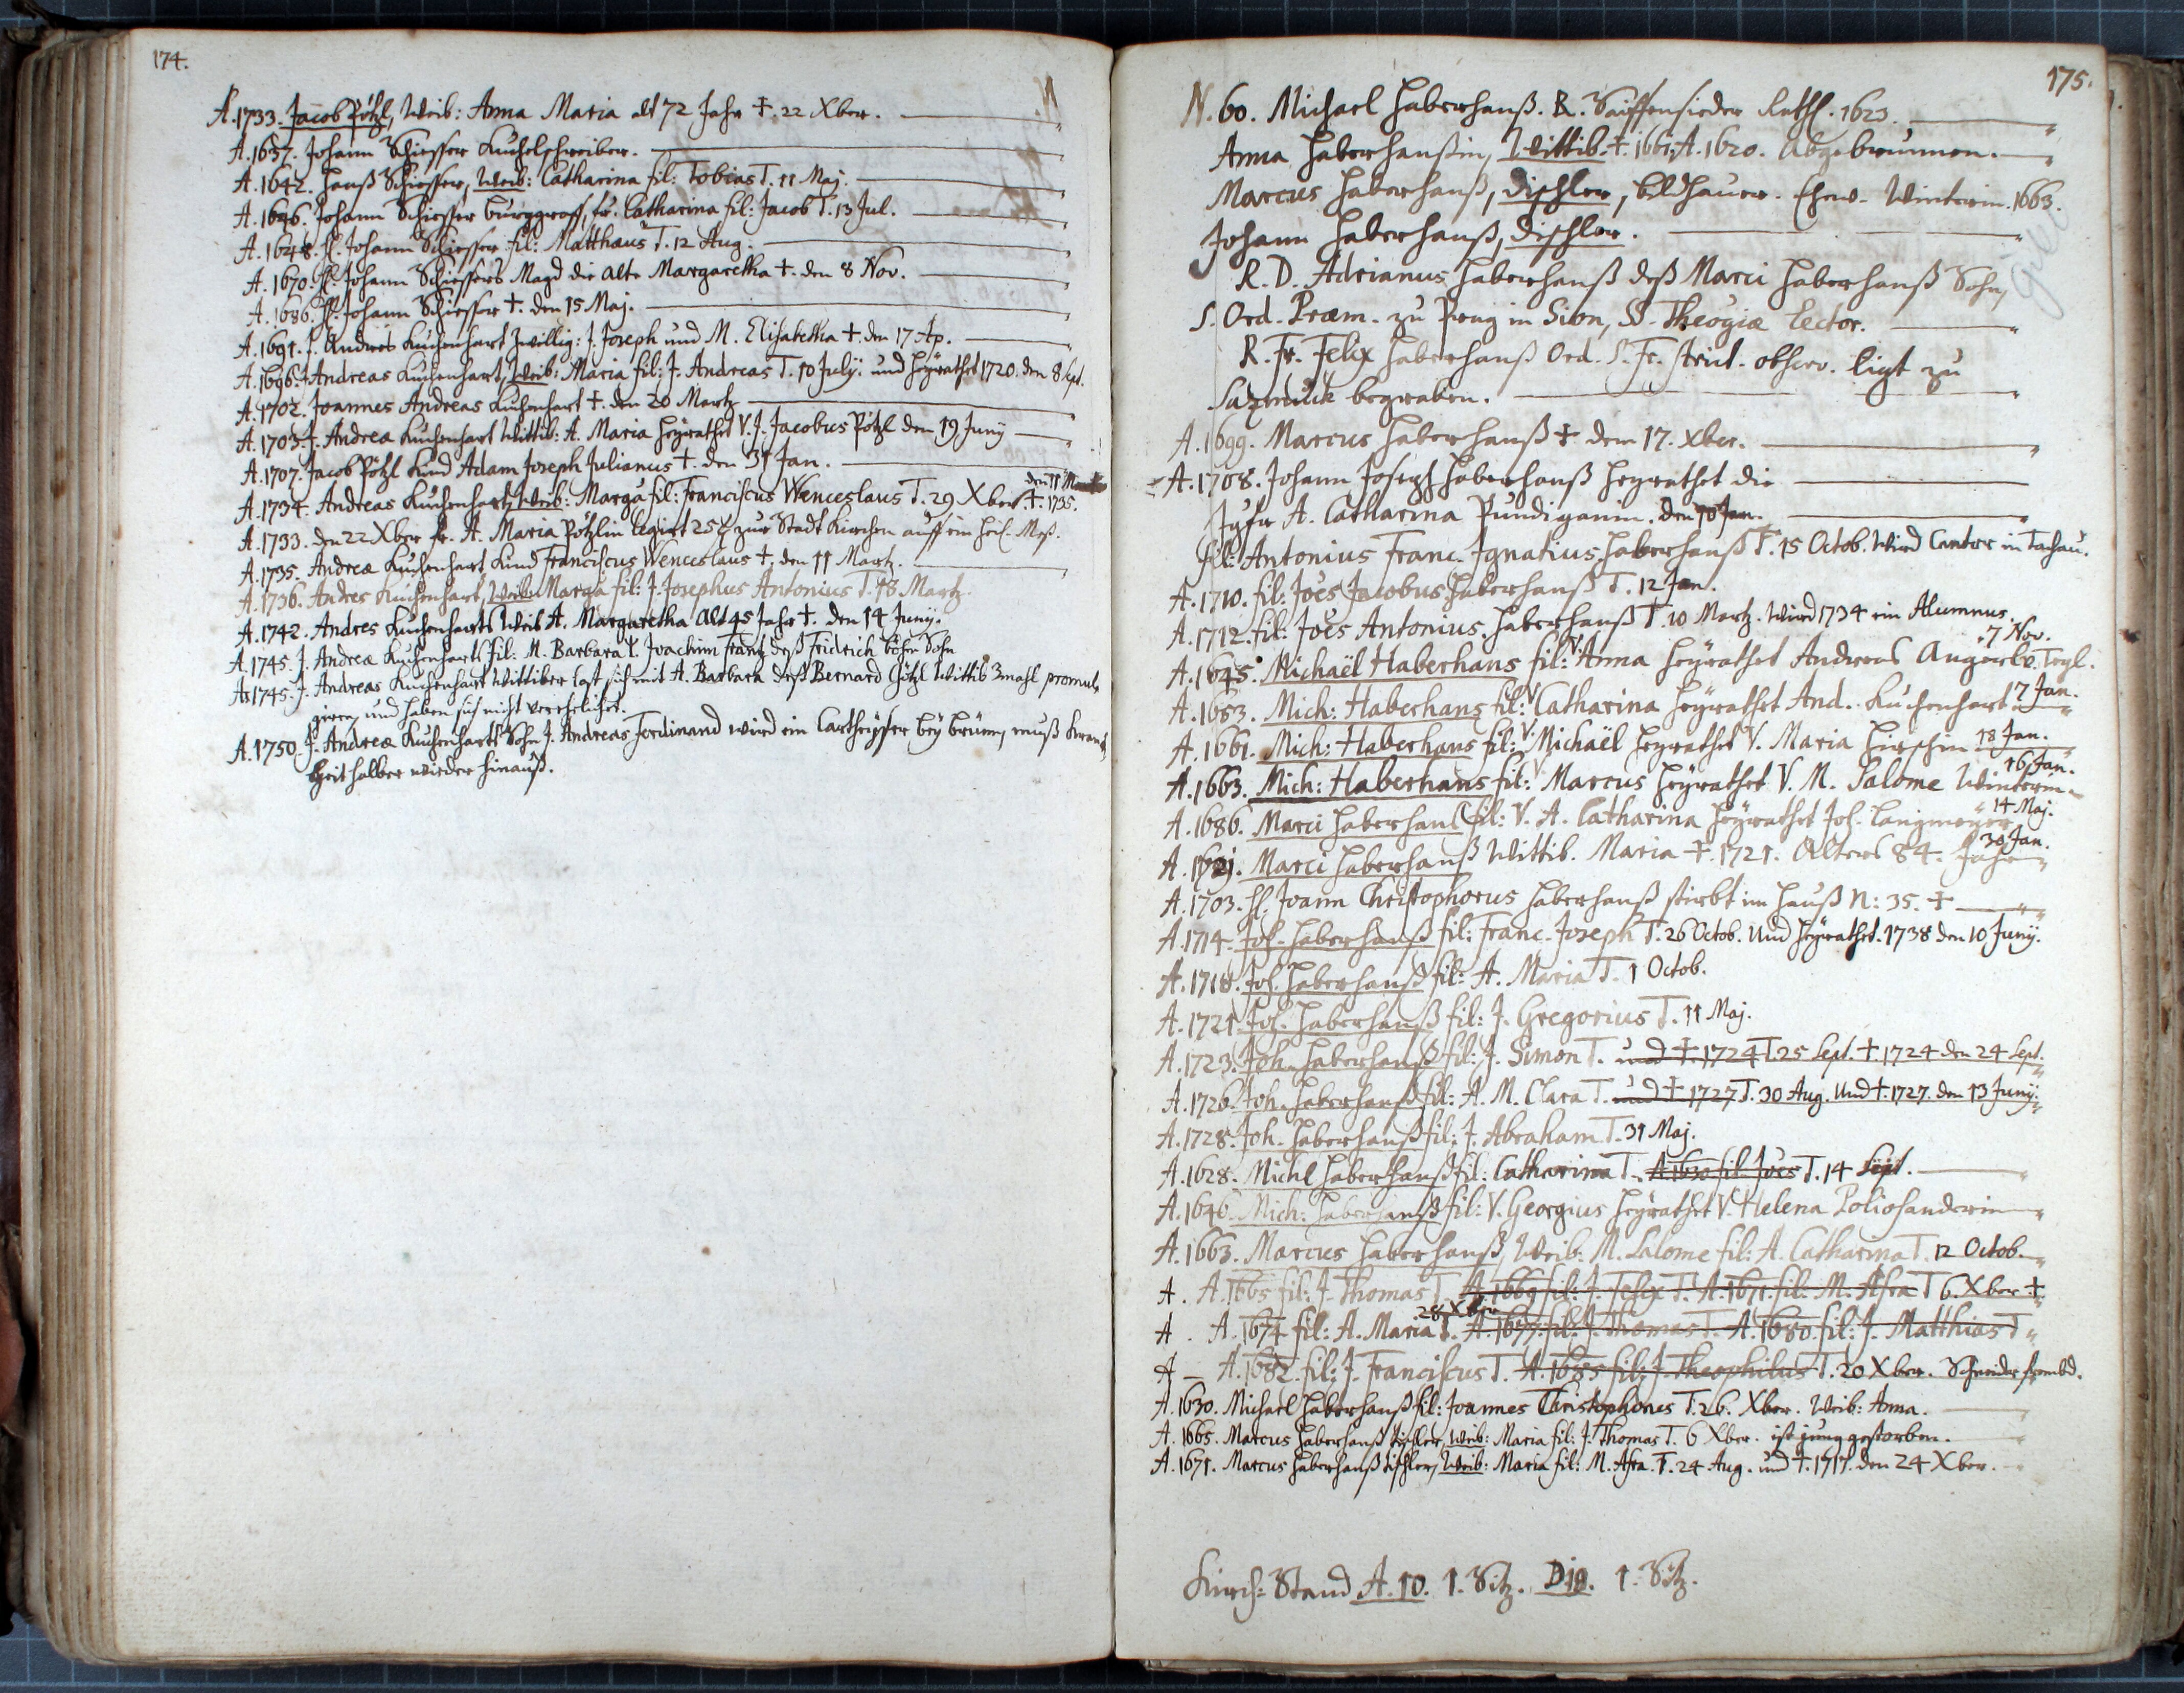 174.
A. 1733. Jacob Pötzl, Weib: Anna Maria alt 72 Jahr †. 22 Xber.
A. 1637. Johann Schiesser Kuchelschreiber.
A. 1642. Hanß Schiesser, Weib: Catharina fil: Tobias T. 11 Maj.
A. 1646. Johann Schiesser burggraff, fr. Catharina fil: Jacob T. 13 Jul.
A. 1648. H. Johann Schiesser fil: Matthaus T. 12 Aug.
A. 1670. H. Johann Schiessers Magd die alte Margaretha †. den 8 Nov.
A. 1686. H. Johann Schiesser †. den 15 Maj.
A. 1691. J. Andres Kuchenhart Zwillig: J. Joseph und M. Elisabetha †. den 17 Ap.
A. 1696. J. Andreas Kuchenhart, Weib: Maria fil: J. Andreas T. 10 Julÿ. und heÿrathet 1720. den 8 Sept.
A. 1702. Joannes Andreas Kuchenhart †. den 20 Martz
A. 1703. J. Andreæ Kuchenhart Wittib: A. Maria heÿrathet V. J. Jacobus Pötzl den 19 Junÿ
A. 1707. Jacob Pötzl Kind Adam Joseph Julianus †. den 31 Jan.
den 11 Martz
A. 1734. Andreas Kuchenhart, Weib: Margâ fil: Franciscus Wenceslaus T. 29 Xber. †. 1735.
A. 1733. den 22 Xber fr. A. Maria Pötzlin legirt 25 zur Stadt Kirchen auff ein heil. Meß.
A. 1735. Andreæ Kuchenhart Kind Franciscus Wenceslaus †. den 11 Martz.
A. 1736. Andres Kuchenhart, Weib: Margâ fil: J. Josephus Antonius T. 18 Martz.
A. 1742. Andres Kuchenharts Weib A. Margaretha alt 45 Jahr †. den 14 Junÿ.
A. 1745. J. Andreæ Kuchenharts fil: M. Barbara V. Joachim Frantz deß Fridrich böhm Sohn
A. 1745. J. Andreas Kuchenhart Wittiber last sich mit A. Barbara deß Bernard Götzl Wittib 3mahl promul-
giren, und haben sich nicht verehelichet.
A. 1750. J. Andreæ Kuchenharts Sohn J. Andreas Ferdinand wird ein Cartheÿser beÿ brünn, muß Kranck
heit halber wieder hinauß.
175.
N. 60. Michael Haberhanß. R. Saiffensieder Rathl. 1623.
Anna Haberhanßin, Wittib. †. 1661. A. 1620. Abgebrunnen.
Marcus Haberhanß, Dischler, bildhauer. Ehew. Winterin. 1663.
Johann Haberhanß, Dischler.
R. D. Adrianus Haberhanß deß Marci Haberhanß Sohn,
S. Ord. Præm. zu Prag in Sion, SS. Theogiæ Lector.
R. Fr. Felix Haberhanß Ord. S. Fr. strict. observ. ligt zu
begraben.
A. 1699. Marcus Haberhanß † dem 17. Xber.
A. 1708. Johann Joseph Haberhanß heÿrathet die
Jgfr A. Catharina Pündiganin. den 10 Jan.
fil: Antonius Franc. Ignatius Haberhanß T. 15 Octob. Wird Cantor in Tachau.
A. 1710. fil: Joës Jacobus Haberhanß T. 12 Jan.
A. 1712. fil: Joës Antonius Haberhanß T. 10 Martz. Wird 1734 ein Alumnus.
7 Nov.
A. 1645. Michaël Haberhans fil: V. Anna heÿrathet Andreas Angerl v. Tepl.
7 Jan.
A. 1653. Mich: Haberhans fil: V. Catharina heÿrathet And. Kuchenhart
18 Jan.
A. 1661. Mich: Haberhans fil: V. Michaël heÿrathet V. Maria Hirschin
16 Jan.
A. 1663. Mich: Haberhans fil: V. Marcus heÿrathet V. M. Salome Winterin
14 Maj.
A. 1686. Marci Haberhans fil: V. A. Catharina heÿrathet Joh. Langmeÿer
30 Jan.
A. 1721. Marci Haberhanß Wittib. Maria †. 1721. Alters 84. Jahr
A. 1703. H. Joann Christophorus Haberhanß stirbt im Hauß N: 35. †
A. 1714. Joh. Haberhanß fil: Franc. Joseph T. 26 Octob. Und heÿrathet. 1738 den 10 Junÿ.
A. 1718. Joh. Haberhanß fil: A. Maria T. 1 Octob.
A. 1721. Joh. Haberhanß fil: J. Gregorius T. 11 Maj.
A. 1723. Joh. Haberhanß fil: J. Simon T. und † 1724 T. 25 Sept. † 1724 den 24 Sept.
A. 1726. Joh. Haberhanß fil: A. M. Clara T. und † 1727 T. 30 Aug. Und †. 1727. den 13 Junÿ.
A. 1728. Joh. Haberhanß fil: J. Abraham T. 31 Maj.
A. 1628. Michl Haberhanß fil: Catharina T. A. 1630 fil: Joës T. 14 Sept.
A. 1646. Mich: Haberhanß fil: V. Georgius heÿrathet V. Helena Poliohanderin
A. 1663. Marcus Haberhanß, Weib. M. Salome fil: A. Catharina T. 12 Octob.
A. A. 1665 fil: J. Thomas T. A. 1669 fil: J. Felix T. A. 1671. fil: M. Afra T 6 Xber †.
28 Xber
A. A. 1674 fil: A. Maria T. A. 1677. fil: J. Thomas T. A. 1680. fil: J. Matthias T
A A. 1682. fil: J. Franciscus T. A. 1685 fil: J. Theophilus T. 20 Xber. Schneider frembd.
A. 1630. Michael Haberhanß fil: Joannes Christophorus T. 26. Xber. Weib: Anna.
A. 1665. Marcus Haberhanß tischler, Weib: Maria fil: J. Thomas T. 6 Xber. ist jung gestorben.
A. 1671. Marcus Haberhanß tischler, Weib: Maria fil: M. Afra. T. 24 Aug. und †. 1717. den 24 Xber.
Kirch: Stand A. 10. 1. Sitz. D 19. 1. Sitz.